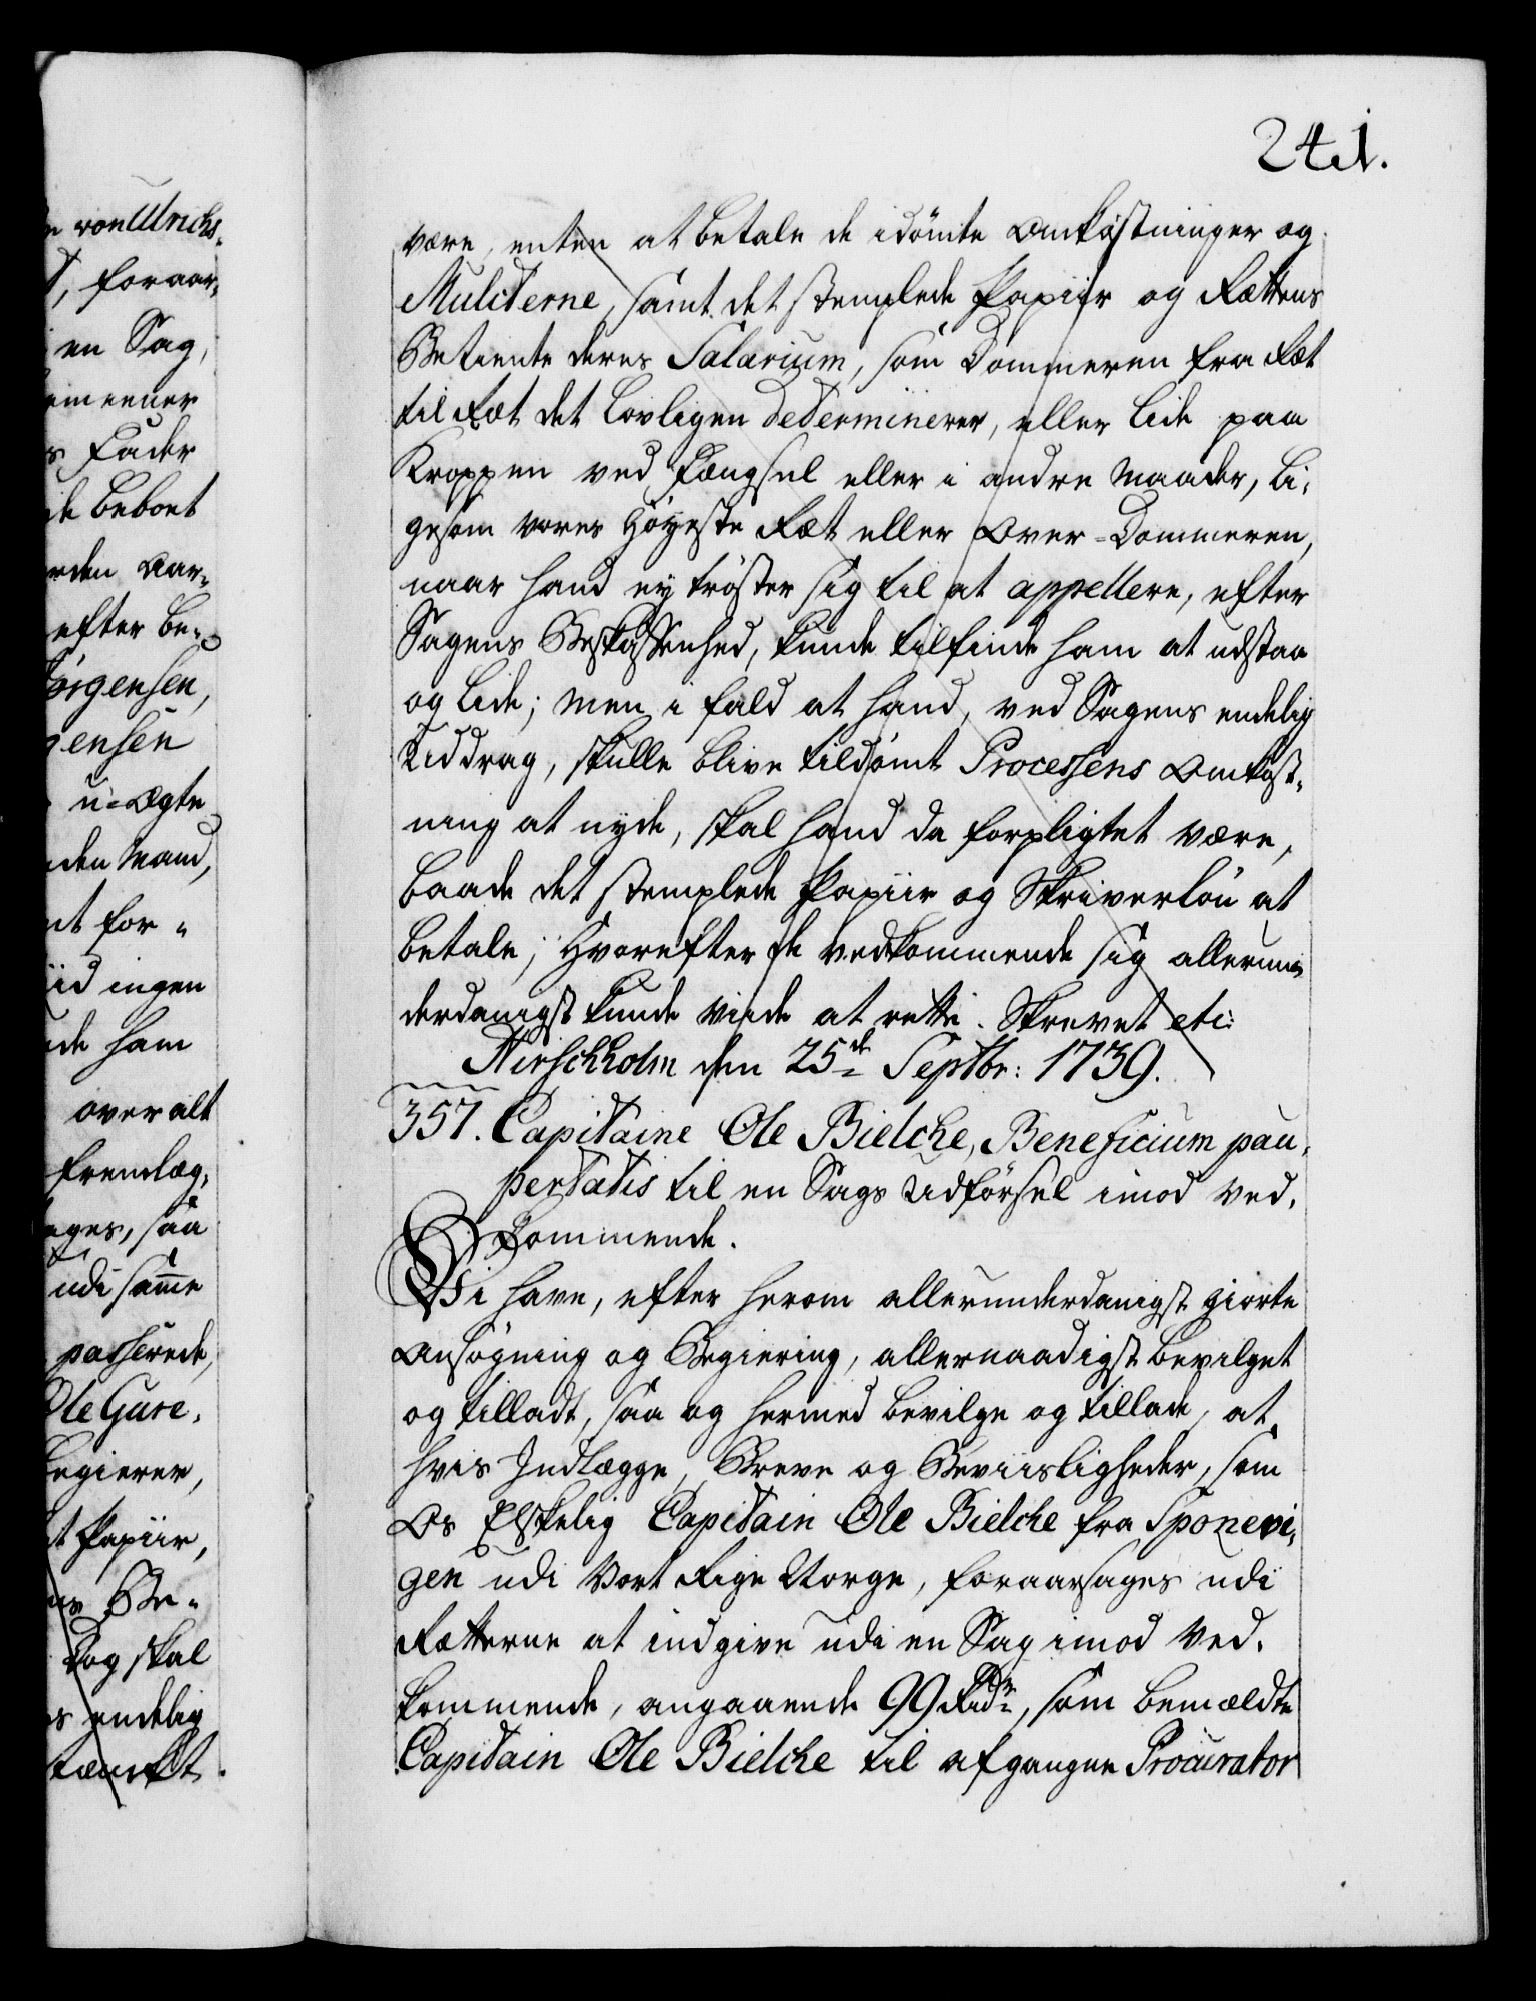 n von Ulrichs-
foraar-
en Sag,
s Fader
de beboet
rden Aar-
efter Be-
Jörgensen,
gensen
u-ægte
den Mand,
nt for-
iid ingen
de ham
over alt
fremlæg-
ages, saa
udi samme
passerede,
Ole Gure-
begierer,
t Papiir,
ns Be-
Dog skal
s endelig
241.
være, enten at betale de idömte Omkostninger og
Mulcterne, samt det stemplede Papiir og Rettens
Betiente deres Salarium, som Dommeren fra Ret
til Ret det lovligen determinerer, eller lide paa
Kroppen ved Fængsel eller i andre Maader, li-
gesom vores Höyeste Ret eller Over-Dommeren,
naar hand ey tröster sig til at appellere, efter
Sagens Beskaffenhed, kunde tilfinde ham at udstaa
og lide; men i fald at hand, ved Sagens endelig
Uddrag, skulle blive tildömt Processens Omkost-
ning at nyde, skal hand da forpligtet være,
baade det stemplede Papiir og Skriverlön at
betale; Hvorefter de vedkommende sig allerun-
derdanigst kunde viide at rette. Skrevet etc:
Hirschholm den 25de Septbr: 1739.
357. Capitaine Ole Bielche, Beneficium pau-
pertatis til en Sags Udförsel imod Ved-
kommende.
Vi have, efter herom allerunderdanigst giorte
Ansögning og Begiering, allernaadigst bevilget
og tilladt, saa og hermed bevilge og tillade, at
hvis Indlægge, Breve og Beviisligheder, som
Os Elskelig Capitain Ole Bielche fra Sponevi-
gen udi Vort Rige Norge, foraarsages udi
Retterne at indgive udi en Sag imod Ved-
kommende, angaaende 99 Rdr, som bemældte
Capitain Ole Bielche til afgangne Procurator